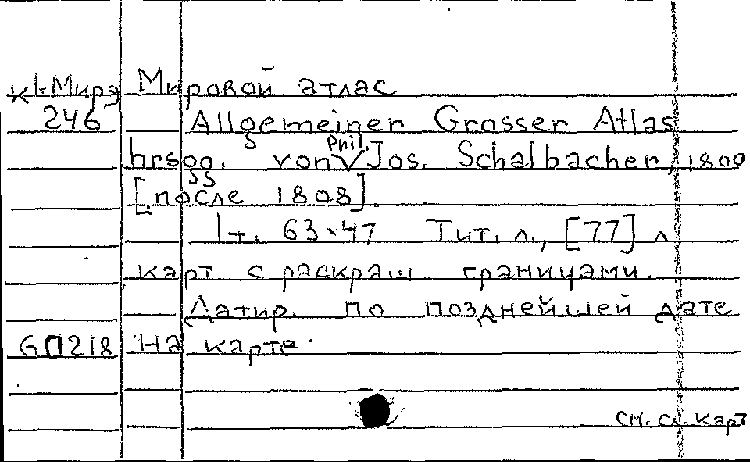 К1-Мирэ Мировой атлас
246 Allgemeiner Grosser Atlas
hrsgg. von Phil. Jos. Schalbacher, 1800
[после 1808].
1 т. 63×47 Тит. л., [77] л
карт с раскраш границами.
Датир. по позднейшей дате
GП218 на карте.
см. сл. карт